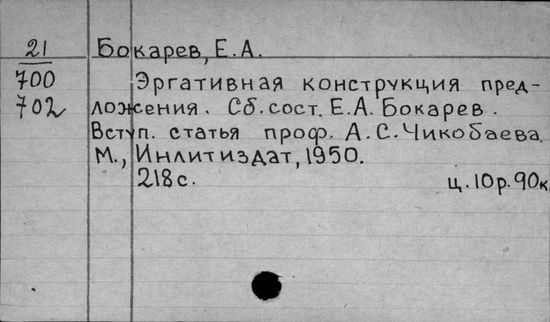 21 Бокарев, Е.А.
700 Эргативная конструкция пред-
702 ложения. Сб. сост. Е.А. Бокарев.
Вступ. статья проф. А.С. Чикобаева.
М., Инлитиздат, 1950.
218 с. ц. 10 р. 90 к